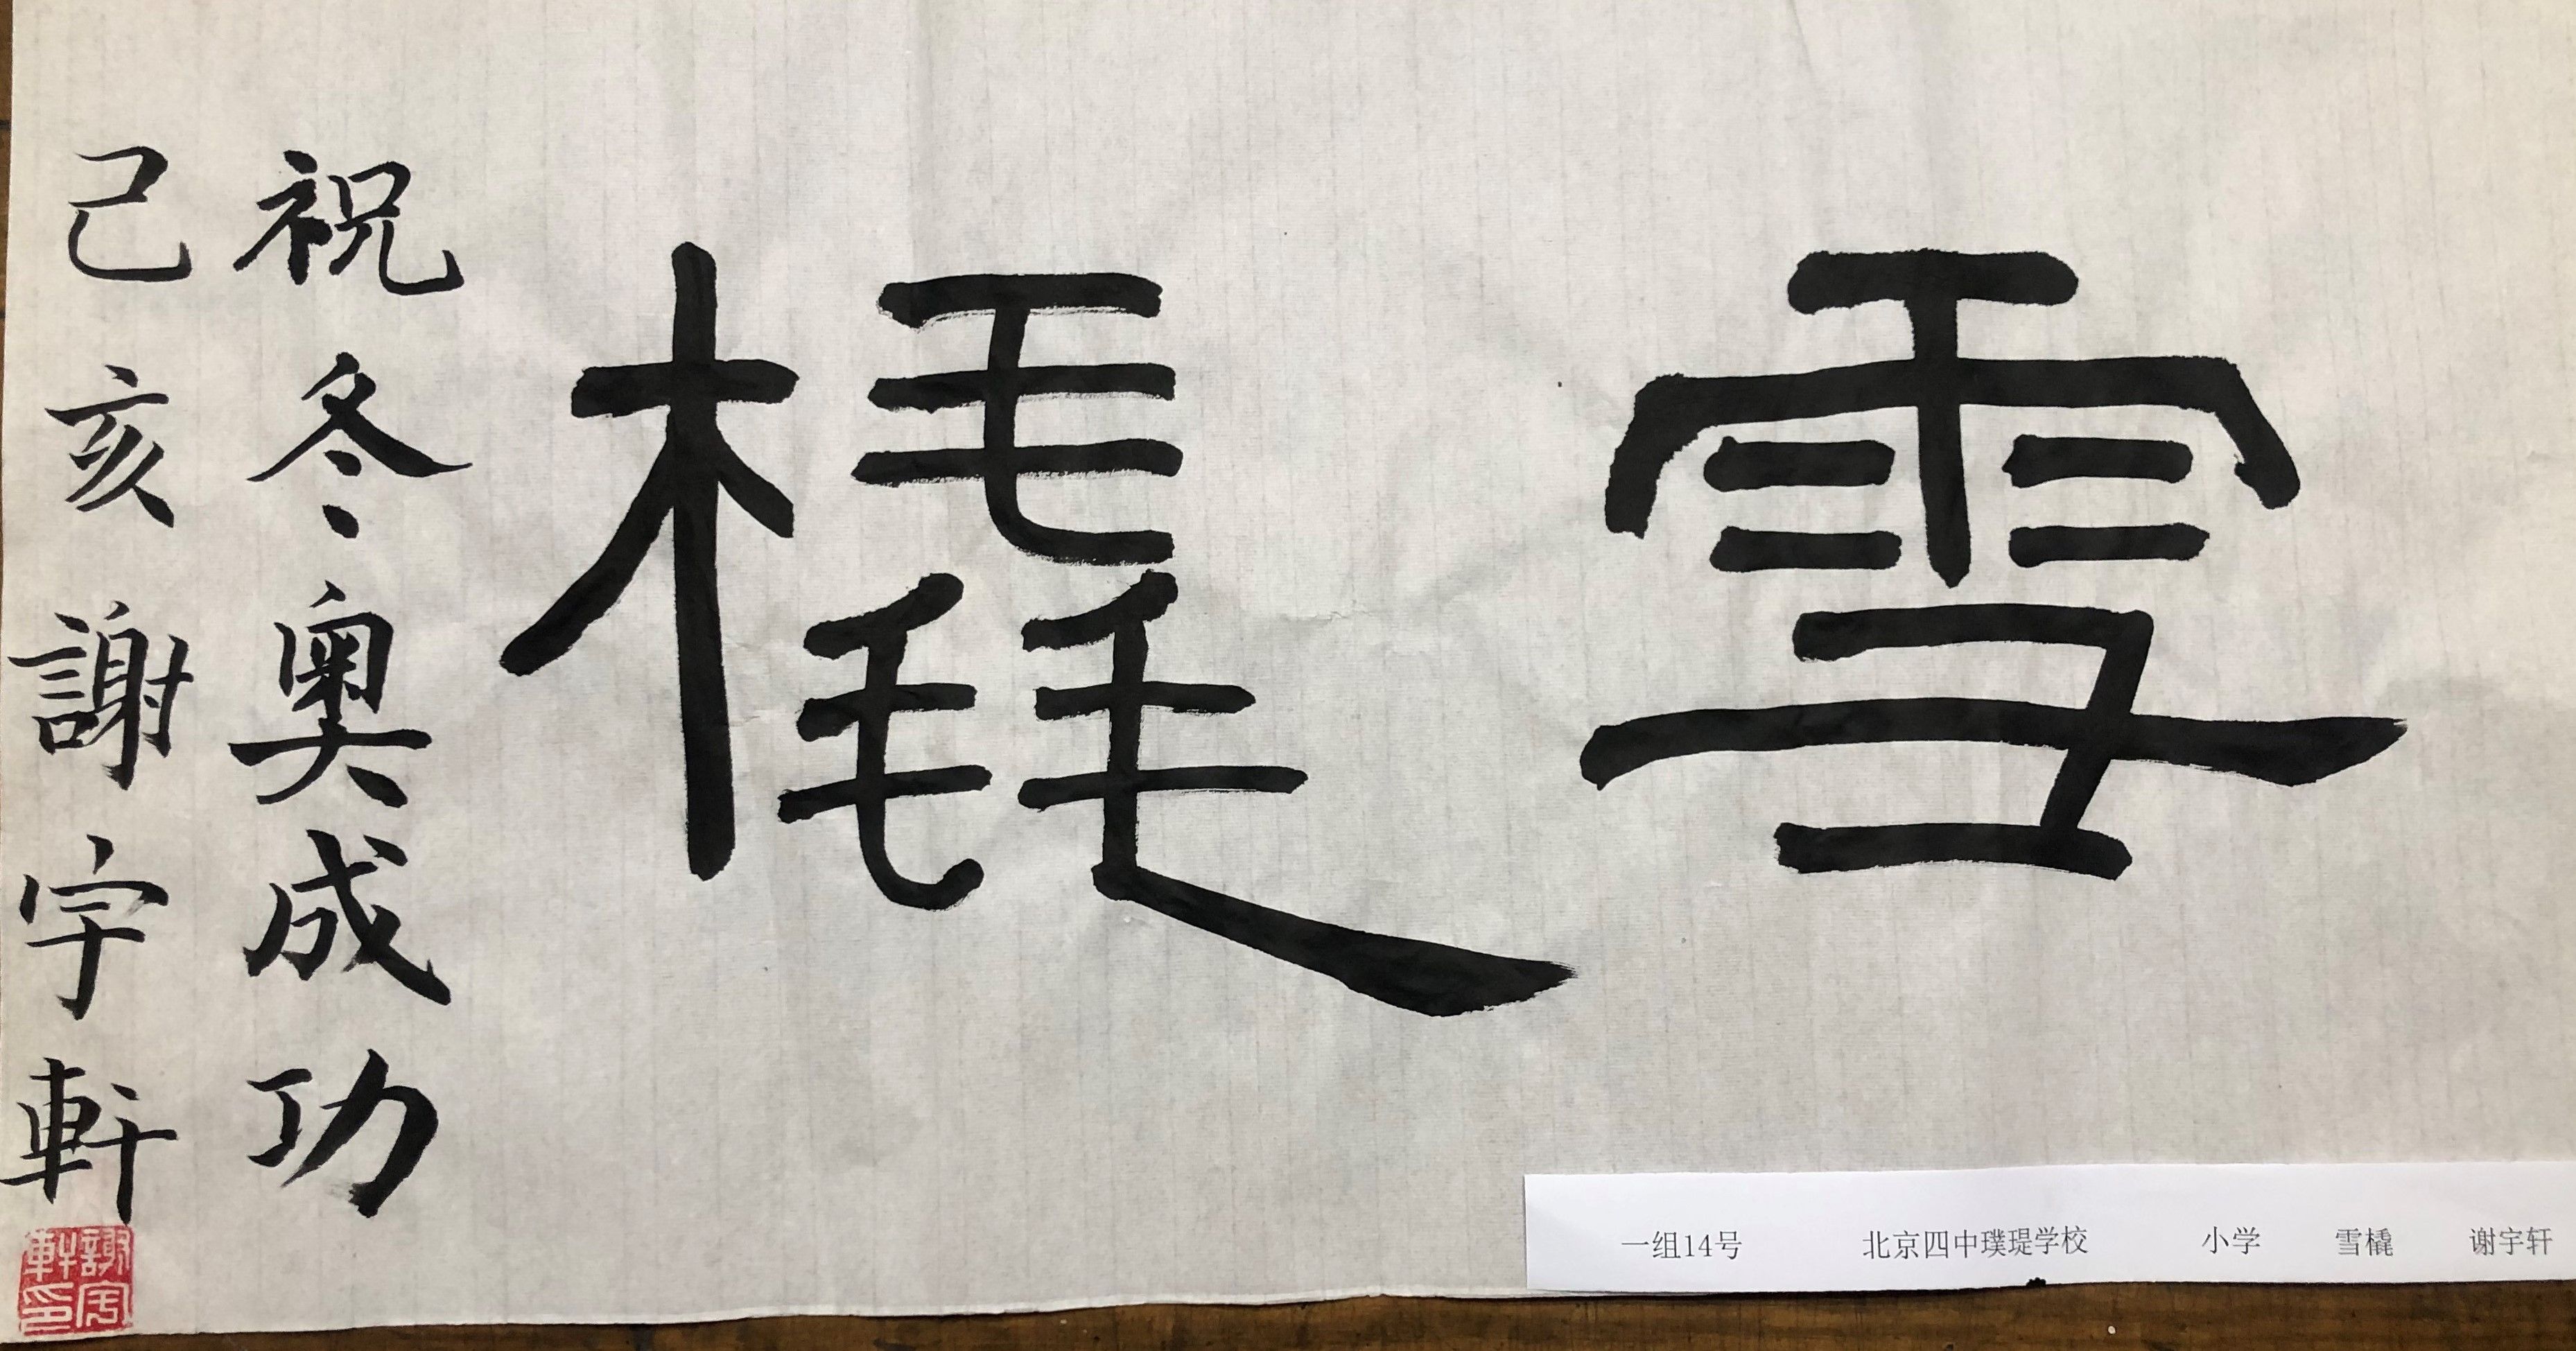 雪橇
祝冬奥成功
己亥謝宇軒
謝宇軒印
一组14号 北京四中璞瑅学校 小学 雪橇 谢宇轩